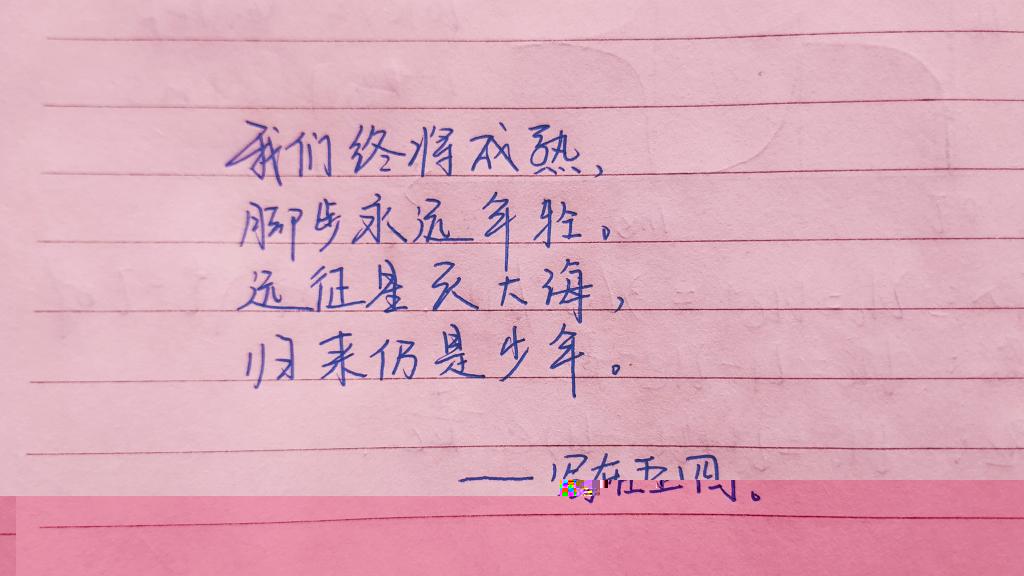 我们终将成熟,
脚步永远年轻。
远征星辰大海,
归来仍是少年。
——写在五四。